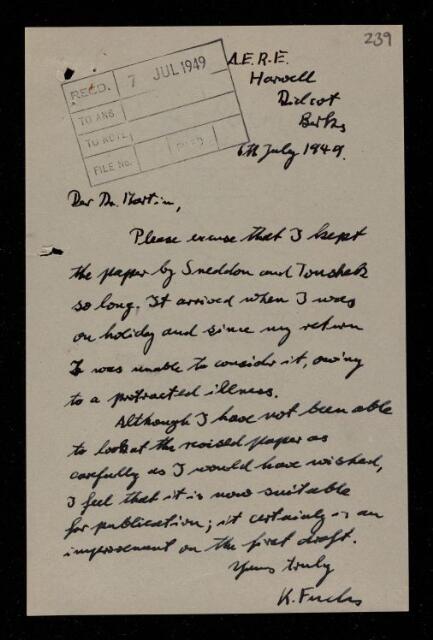 239
RECD. 7 JUL 1949
TO ANS.
TO NOTE
FILE No.
A.E.R.E.
Harwell
Didcot
Berks
6th July 1949.
Dear Dr. Martin,
Please excuse that I kept
the paper by Sneddon and Touschek
so long. It arrived when I was
on holiday and since my return
I was unable to consider it, owing
to a protracted illness.
Although I have not been able
to look at the revised paper as
carefully as I would have wished,
I feel that it is now suitable
for publication; it certainly is an
improvement on the first draft.
Yours truly
K. Fuchs